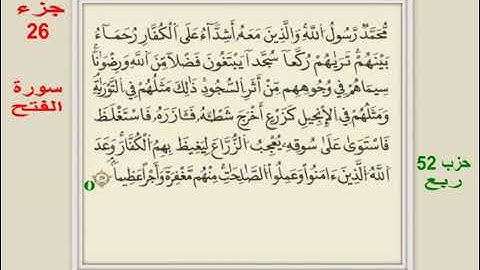 جزء
26
سورة
الفتح
مُّحَمَّدٌ رَّسُولُ اللَّهِ وَالَّذِينَ مَعَهُ أَشِدَّاءُ عَلَى الْكُفَّارِ رُحَمَاءُ
بَيْنَهُمْ تَرَىٰهُمْ رُكَّعًا سُجَّدًا يَبْتَغُونَ فَضْلًا مِّنَ اللَّهِ وَرِضْوَانًا
سِيمَاهُمْ فِي وُجُوهِهِم مِّنْ أَثَرِ السُّجُودِ ذَٰلِكَ مَثَلُهُمْ فِي التَّوْرَىٰةِ
وَمَثَلُهُمْ فِي الْإِنجِيلِ كَزَرْعٍ أَخْرَجَ شَطْـَٔهُ فَـَٔازَرَهُ فَاسْتَغْلَظَ
فَاسْتَوَىٰ عَلَىٰ سُوقِهِ يُعْجِبُ الزُّرَّاعَ لِيَغِيظَ بِهِمُ الْكُفَّارَ وَعَدَ
اللَّهُ الَّذِينَ ءَامَنُوا وَعَمِلُوا الصَّٰلِحَٰتِ مِنْهُم مَّغْفِرَةً وَأَجْرًا عَظِيمًا
حزب 52
ربع